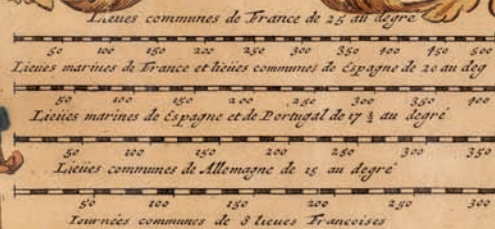 Lieues communes de France de 25 au degre
50 100 150 200 250 300 350 400 450 500
Lieües marines de France et lieües communes de Espagne de 20 au deg
50 100 150 200 250 300 350 400
Lieües marines de Espagne et de Portugal de 17 ½ au degré
50 100 150 200 250 300 350
Lieües communes de Allemagne de 15 au degré
50 100 150 200 250 300
Iournées communes de 8 lieues Francoises